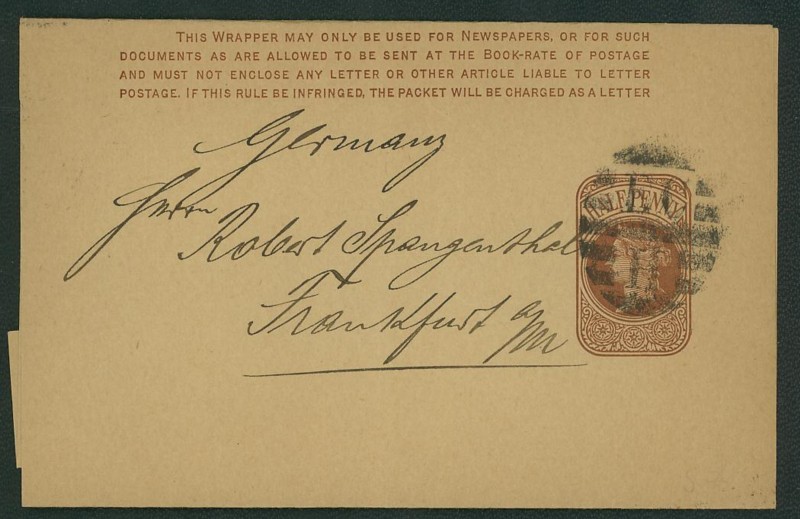 THIS WRAPPER MAY ONLY BE USED FOR NEWSPAPERS, OR FOR SUCH
DOCUMENTS AS ARE ALLOWED TO BE SENT AT THE BOOK-RATE OF POSTAGE
AND MUST NOT ENCLOSE ANY LETTER OR OTHER ARTICLE LIABLE TO LETTER
POSTAGE. IF THIS RULE BE INFRINGED, THE PACKET WILL BE CHARGED AS A LETTER
Germany
Herrn
Robert Spangenthal
Frankfurt a/M
HALFPENNY